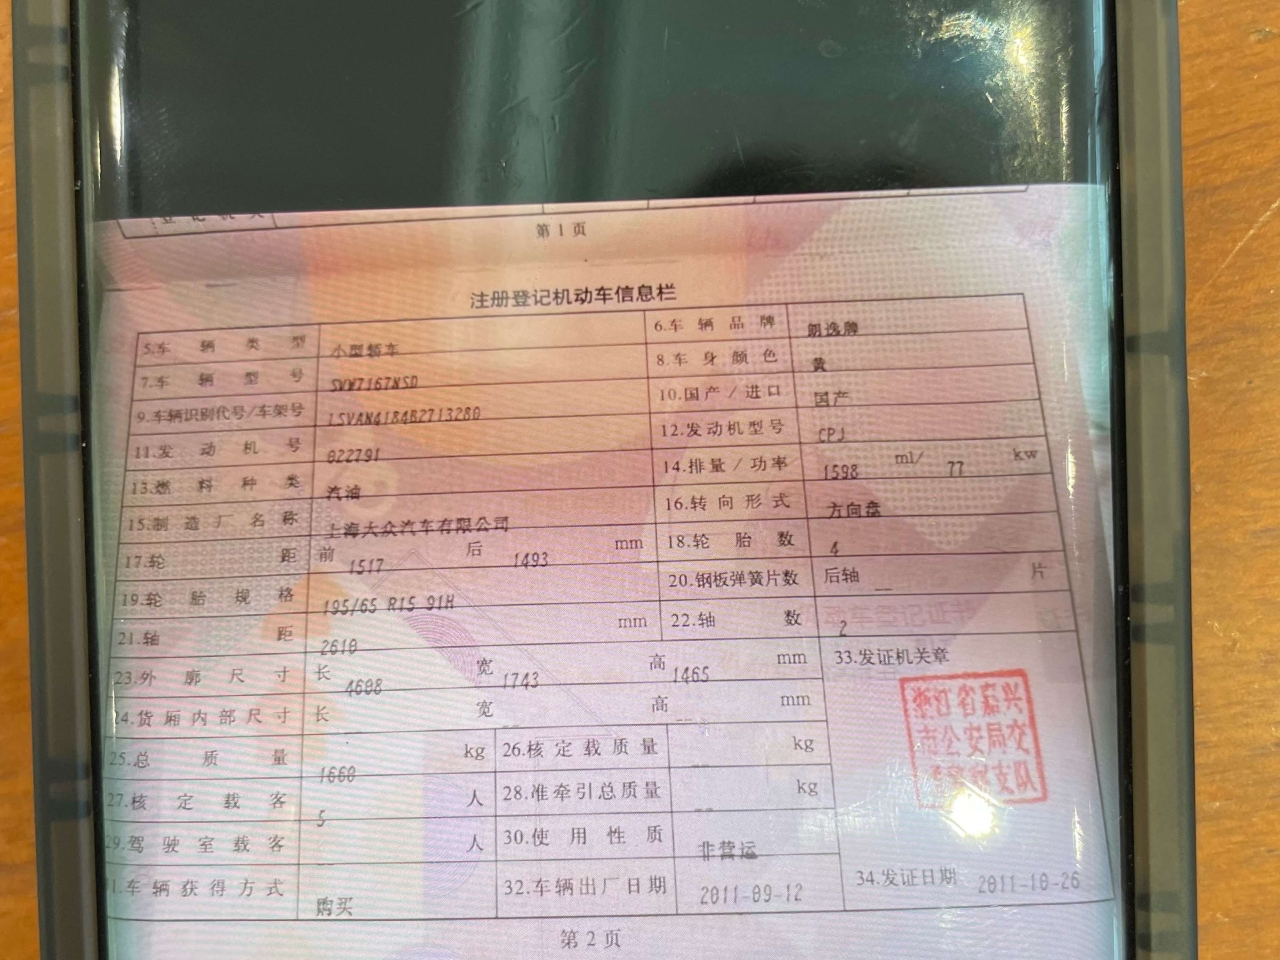 登记机关
第1页
注册登记机动车信息栏
5.车辆类型 小型轿车 6.车辆品牌 朗逸牌
7.车辆型号 SVW7167NSD 8.车身颜色 黄
9.车辆识别代号/车架号 LSVAN4184B2713280 10.国产/进口 国产
11.发动机号 022791 12.发动机型号 CPJ
13.燃料种类 汽油 14.排量/功率 1598 ml/ 77 kw
15.制造厂名称 上海大众汽车有限公司 16.转向形式 方向盘
17.轮距 前 1517 后 1493 mm 18.轮胎数 4
19.轮胎规格 195/65 R15 91H 20.钢板弹簧片数 后轴 -- 片
21.轴距 2610 mm 22.轴数 2
23.外廓尺寸 长 4608 宽 1743 高 1465 mm 33.发证机关章
24.货厢内部尺寸 长 -- 宽 -- 高 -- mm
浙江省嘉兴
市公安局交
支队
25.总质量 1660 kg 26.核定载质量 -- kg
27.核定载客 5 人 28.准牵引总质量 -- kg
29.驾驶室载客 人 30.使用性质 非营运
1.车辆获得方式 购买 32.车辆出厂日期 2011-09-12 34.发证日期 2011-10-26
第2页